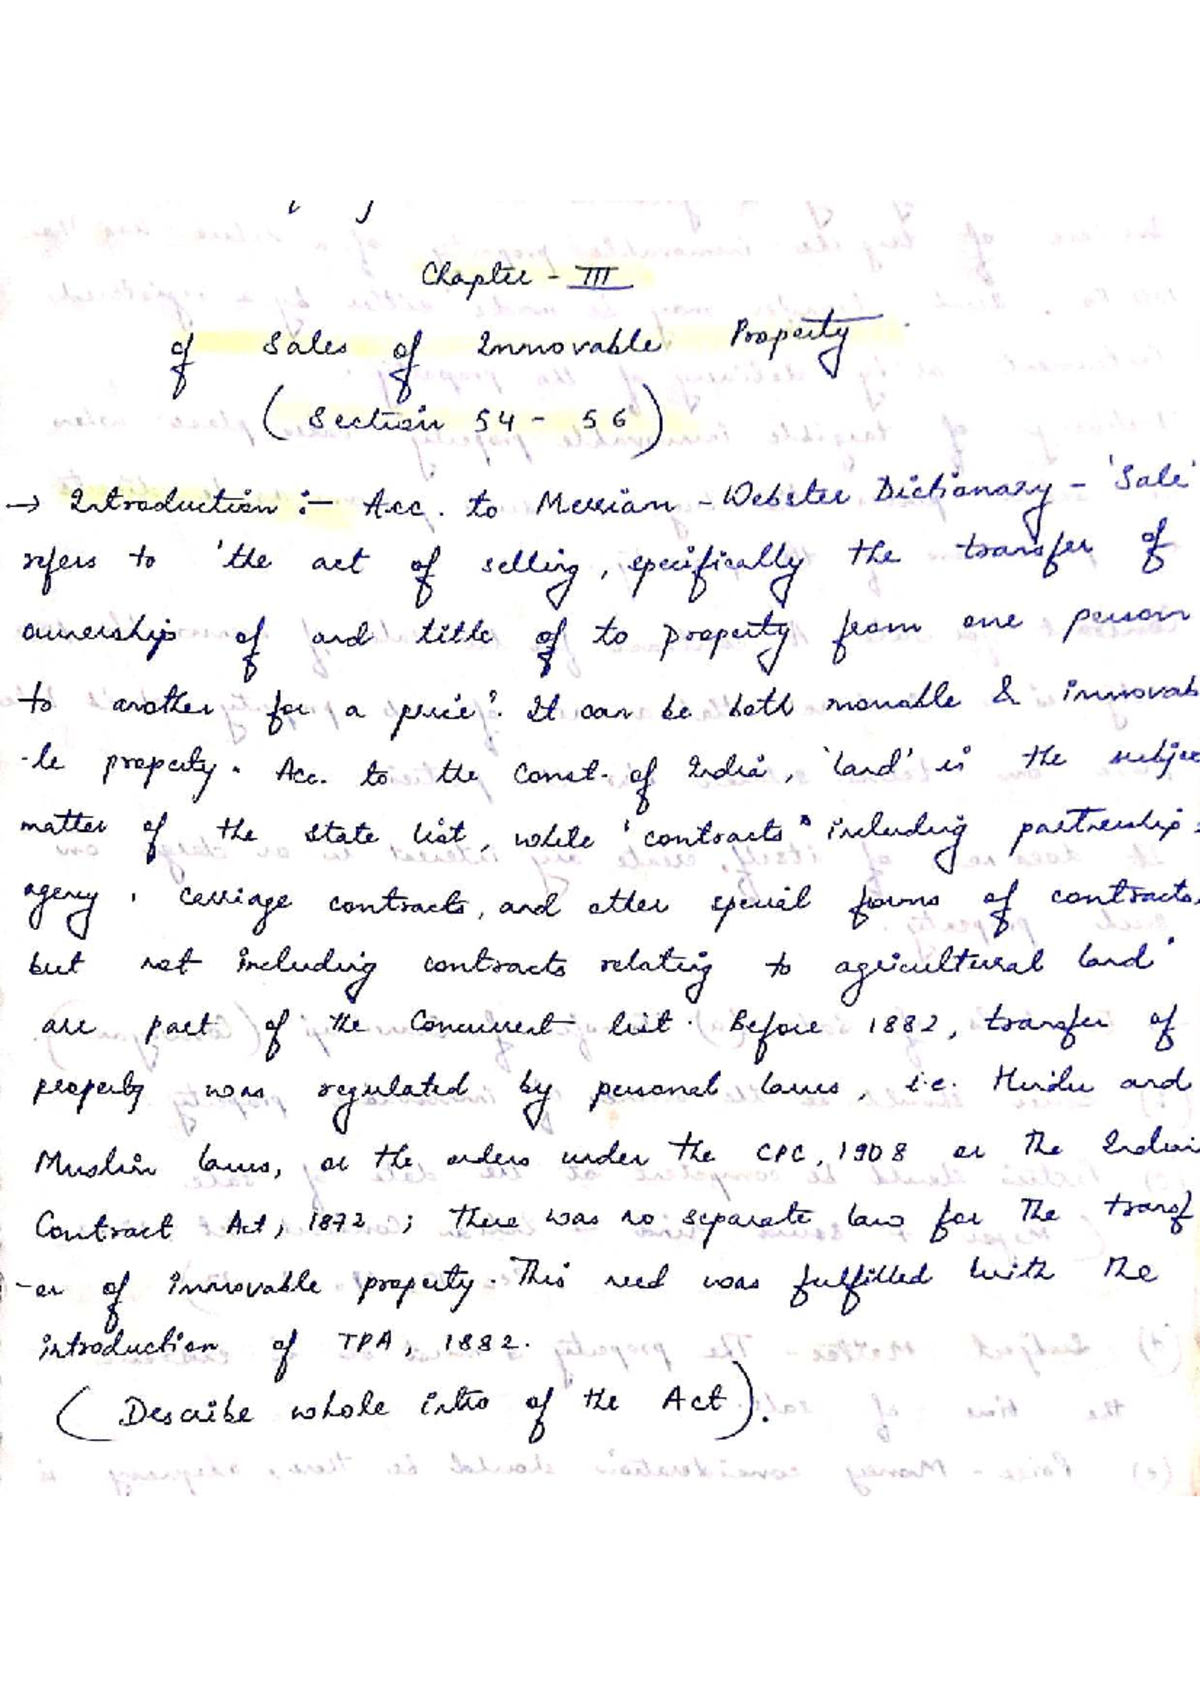 Chapter - III
of Sales of Immovable Property
(Section 54 - 56)
→ Introduction :- Acc. to Merriam - Webster Dictionary - 'Sale'
refers to 'the act of selling, specifically the transfer of
ownership of and title of to property from one person
to another for a price'. It can be both movable & immovab
-le property. Acc. to the Const. of India, 'land' is the subjec
matter of the state list, while 'contracts" including partnership,
agency, carriage contracts, and other special forms of contracts,
but not including contracts relating to agricultural land"
are part of the Concurrent list. Before 1882, transfer of
property was regulated by personal laws, i.e. Hindu and
Muslim laws, or the orders under the CPC, 1908 or the Indian
Contract Act, 1872 ; there was no separate law for the transf
-er of immovable property. This need was fulfilled with the
introduction of TPA, 1882.
(Describe whole intro of the Act).